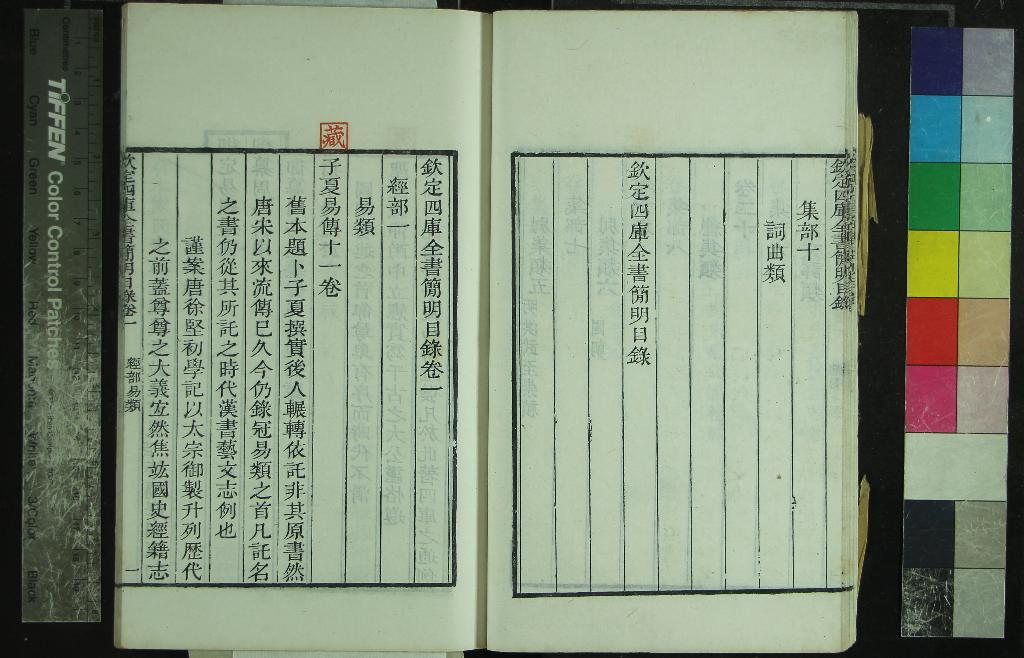 欽定四庫全書簡明目錄
集部十
詞曲類
欽定四庫全書簡明目錄
欽定四庫全書簡明目錄卷一
經部一
易類
藏
子夏易傳十一卷
舊本題卜子夏撰實後人輾轉依託非其原書然
唐宋以來流傳已久今仍錄冠易類之首凡託名
之書仍從其所託之時代漢書藝文志例也
謹案唐徐堅初學記以太宗御製升列歷代
之前蓋尊尊之大義宏然焦竑國史經籍志
欽定四庫全書簡明目錄卷一
經部易類
一
TIFFEN Color Control Patches
Centimetres
Blue
Cyan
Green
Yellow
Red
Magenta
White
3/Color
Black